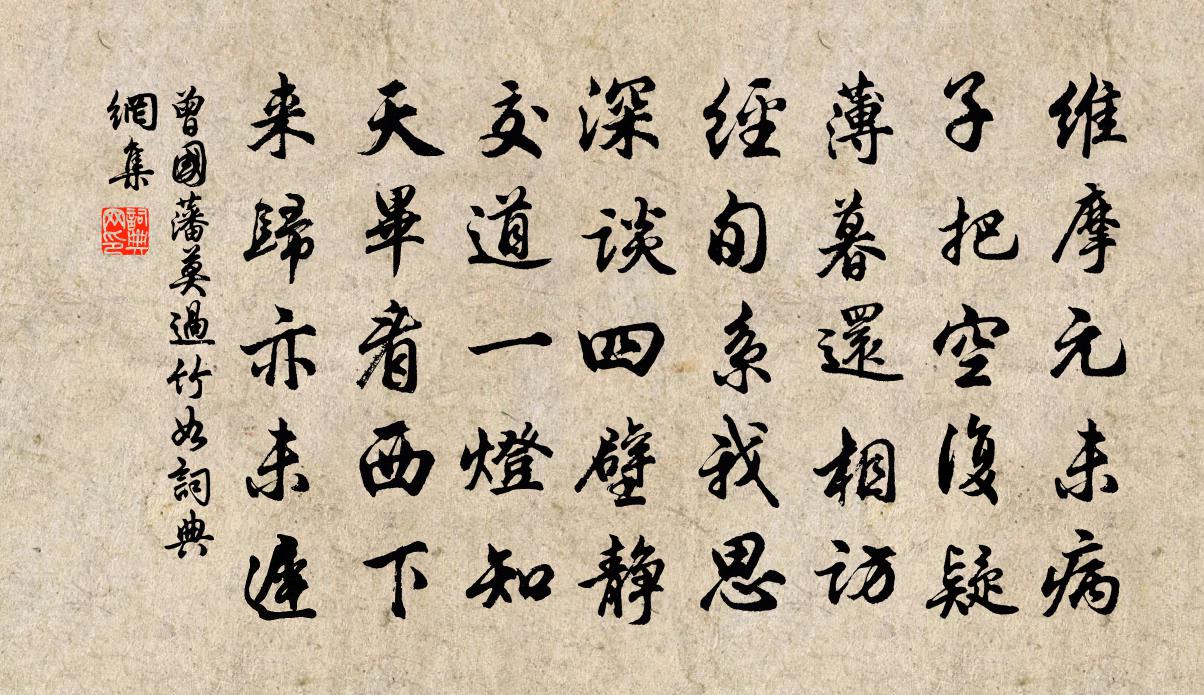 維摩元未病
子把空復疑
薄暮還相訪
經旬系我思
深談四壁静
交道一燈知
天畢看西下
来歸亦未遲
曾國藩莫過竹如詞典
網集
詞典网印